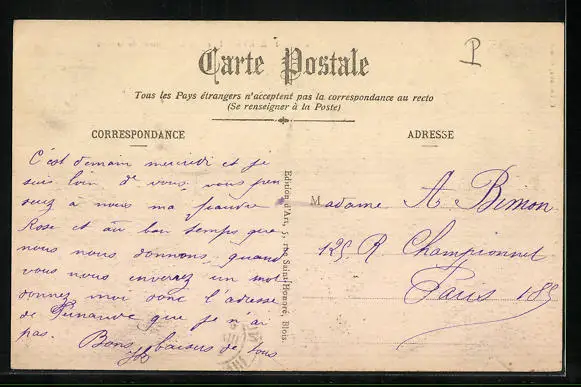 P
Carte Postale
Tous les Pays étrangers n'acceptent pas la correspondance au recto
(Se renseigner à la Poste)
CORRESPONDANCE
ADRESSE
C'est demain mercredi et je
suis loin de vous, vous pen
serez à nous ma pauvre
Rose et au bon temps que
nous nous donnons, quand
vous nous enverrez un mot
donnez moi donc l'adresse
de que je n'ai
pas. Bons baisers de tous
Edition d'Art, 5, rue Saint-Honoré, Blois.
Madame A Bimon
125 R. Championnet
Paris 18e